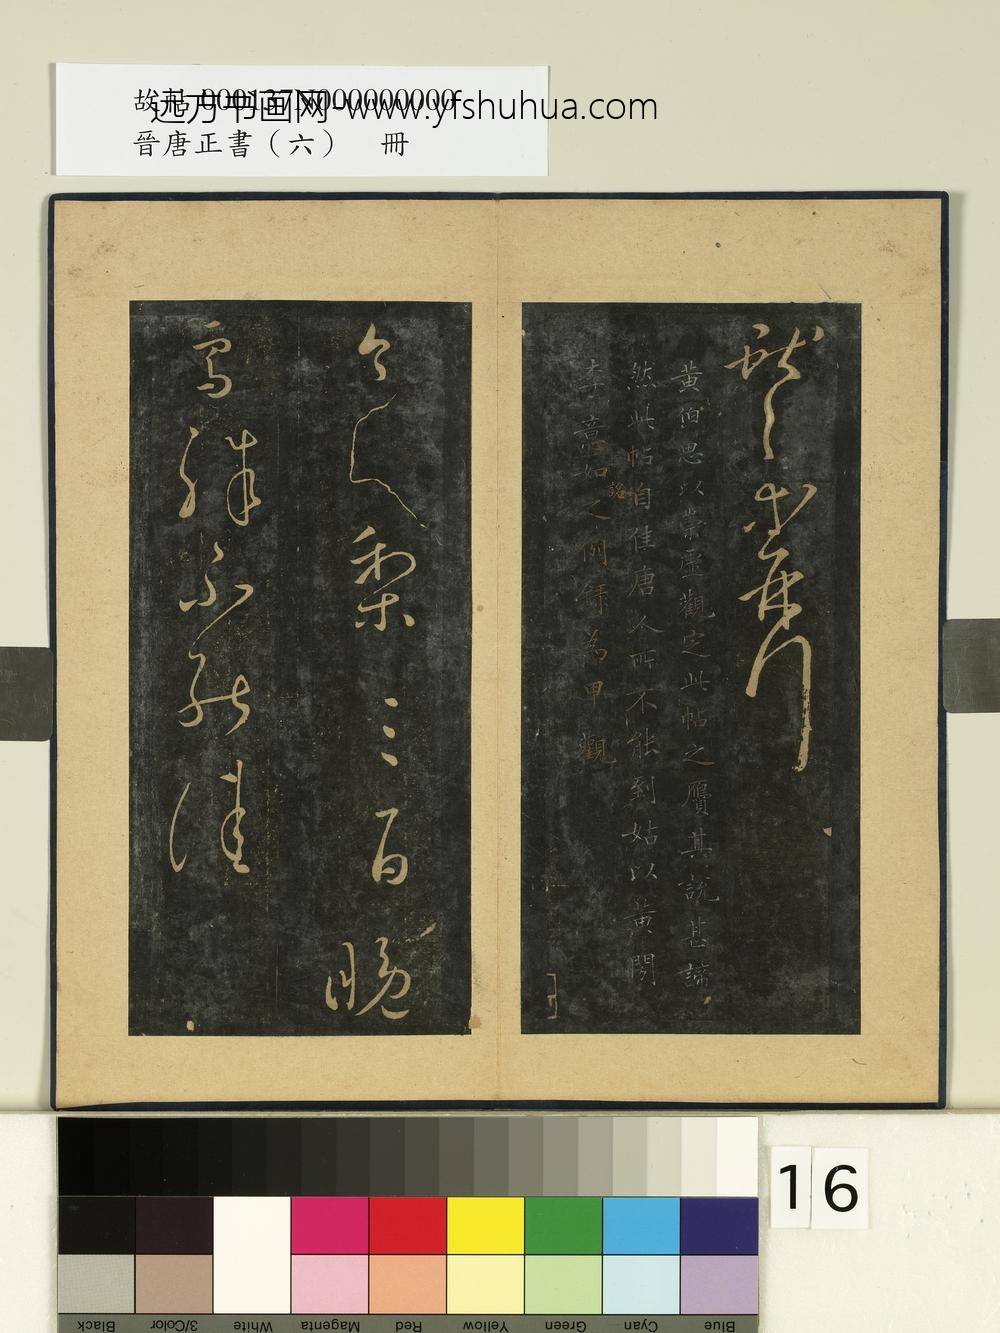 故帖000137N000000000
远方书画网-www.yfshuhua.com
晉唐正書（六） 冊
獻之
黃伯思以崇虛觀定此帖之贗其說甚諦
然此帖自佳唐人所不能到姑以黃閱
李意如之例錄為甲觀
今送梨三百晚
雪殊不能佳
16
Black
3/Color
White
Magenta
Red
Yellow
Green
Cyan
Blue